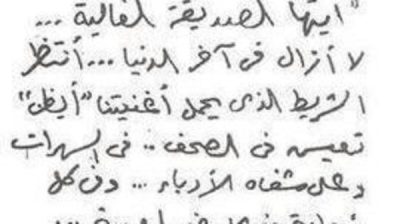 "أيتها الصديقة الغالية ...
لا أزال فى آخر الدنيا ... أنتظر
الشريط الذى يحمل أغنيتنا "أيظن"
تعيش فى الصحف .. فى السهرات
وعلى شفاه الأدباء ... وفى كل